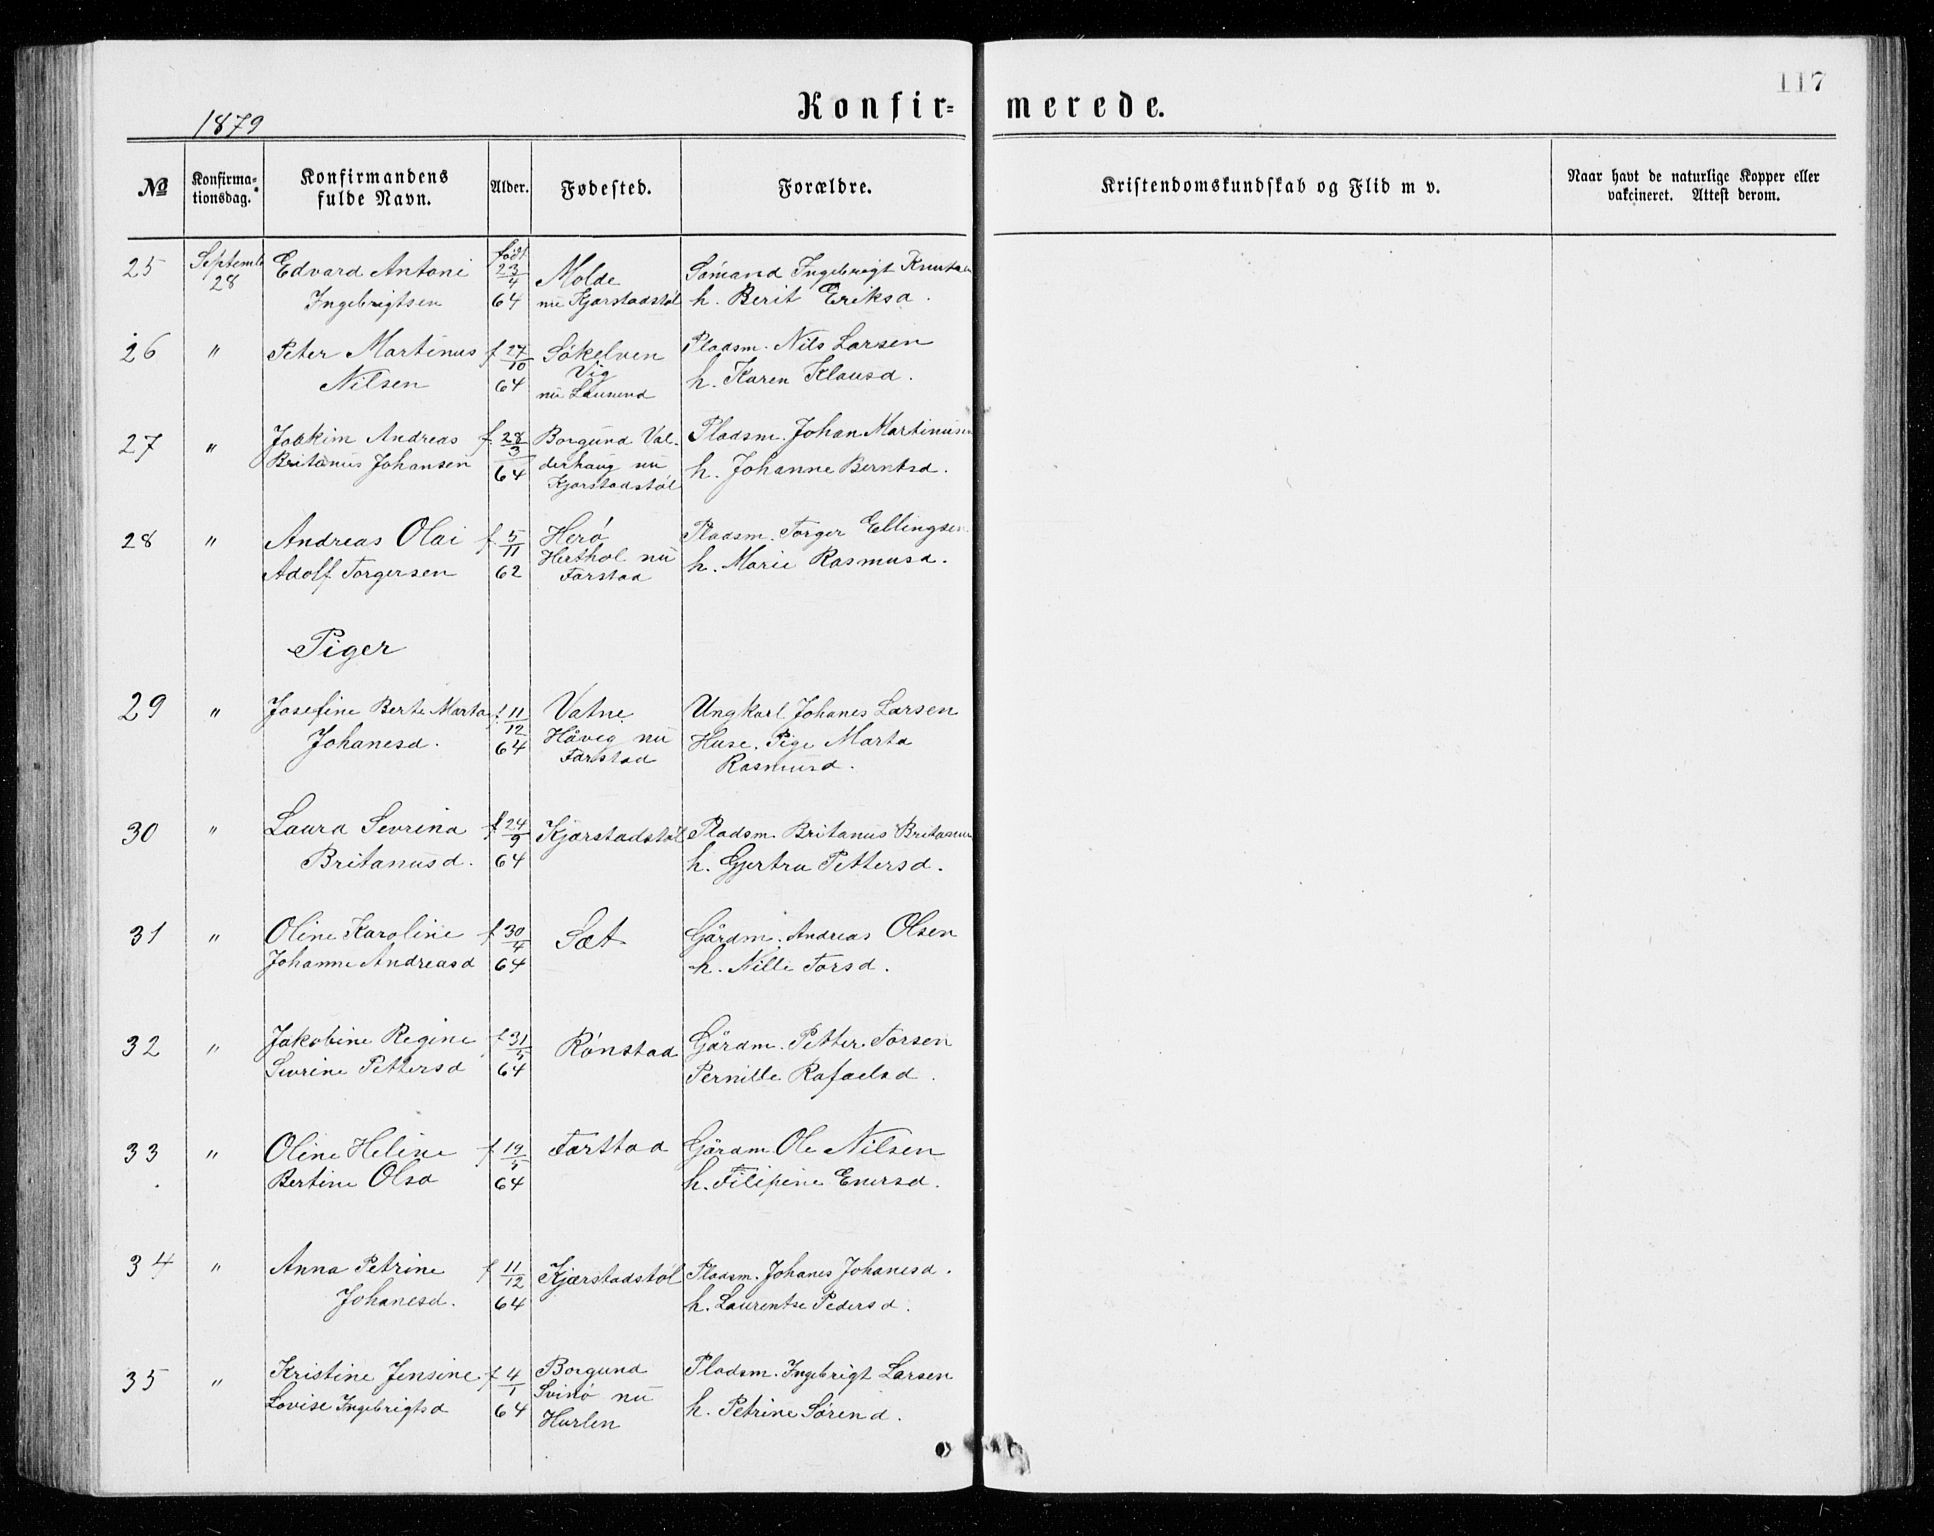 117
Konfir= merede.
1879
No Konfirma=tionsdag. Konfirmandens fulde Navn. Alder. Fødested. Forældre. Kristendomskundskab og Flid m v. Naar havt de naturlige Kopper eller vakcineret. Attest derom.
25 Septemb 28 Edvard Antoni født 23/4 Molde Sømand Ingebrigt Knutsen
Ingebrigtsen 64 nu Kjørstadstøl h. Berit Eriksd.
26 " Peter Martinus f 27/10 Søkelven Pladsm. Nils Larsen
Nilsen 64 Vig h. Karen Klausd.
nu
27 " Joakim Andreas f. 28/3 Borgund Val- Pladsm. Johan Martinusen
Britanus Johansen 64 derhaug nu h. Johanne Berntsd.
Kjørstadstøl
28 " Andreas Olai f 5/11 Herø Pladsm. Torger Ellingsen
Adolf Torgersen 62 Herthol nu h. Marie Rasmusd.
Farstad
Piger
29 " Josefine Berte Marta f 11/12 Vatne Ungkarl Johanes Larsen
Johanesd. 64 Håvig nu Huse. Pige Marta
Farstad Rasmusd.
30 " Laura Sevrina f 24/9 Kjørstadstøl Pladsm. Britanus Britanus
Britanusd. 64 h. Gjertru Pettersd.
31 " Oline Karoline f 30/4 Sæt Gårdm. Andreas Olsen
Johanne Andreasd 64 h. Nille Torsd.
32 " Jakobine Regine f 31/5 Rønstad Gårdm. Petter Torsen
Sevrine Pettersd 64 Pernille Rafaelsd.
33 " Oline Heline f 19/5 Farstad Gårdm Ole Nilsen
Bertine Olsd 64 h. Filipine Enersd.
34 " Anna Petrine f 11/12 Kjærstadstøl Pladsm. Johanes Johanesd.
Johanesd. 64 h. Laurentse Pedersd.
35 " Kristine Jensine f 4/1 Borgund Pladsm. Ingebrigt Larsen
Lovise Ingebrigtsd 64 Svinø nu h. Petrine Sørend.
Hurlen